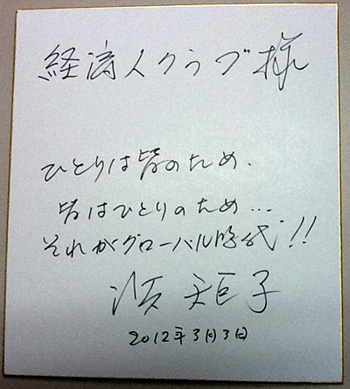 経済人クラブ様
ひとりは皆のため.
皆はひとりのため…
それがグローバル時代!!
浜 矩子
2012年3月3日